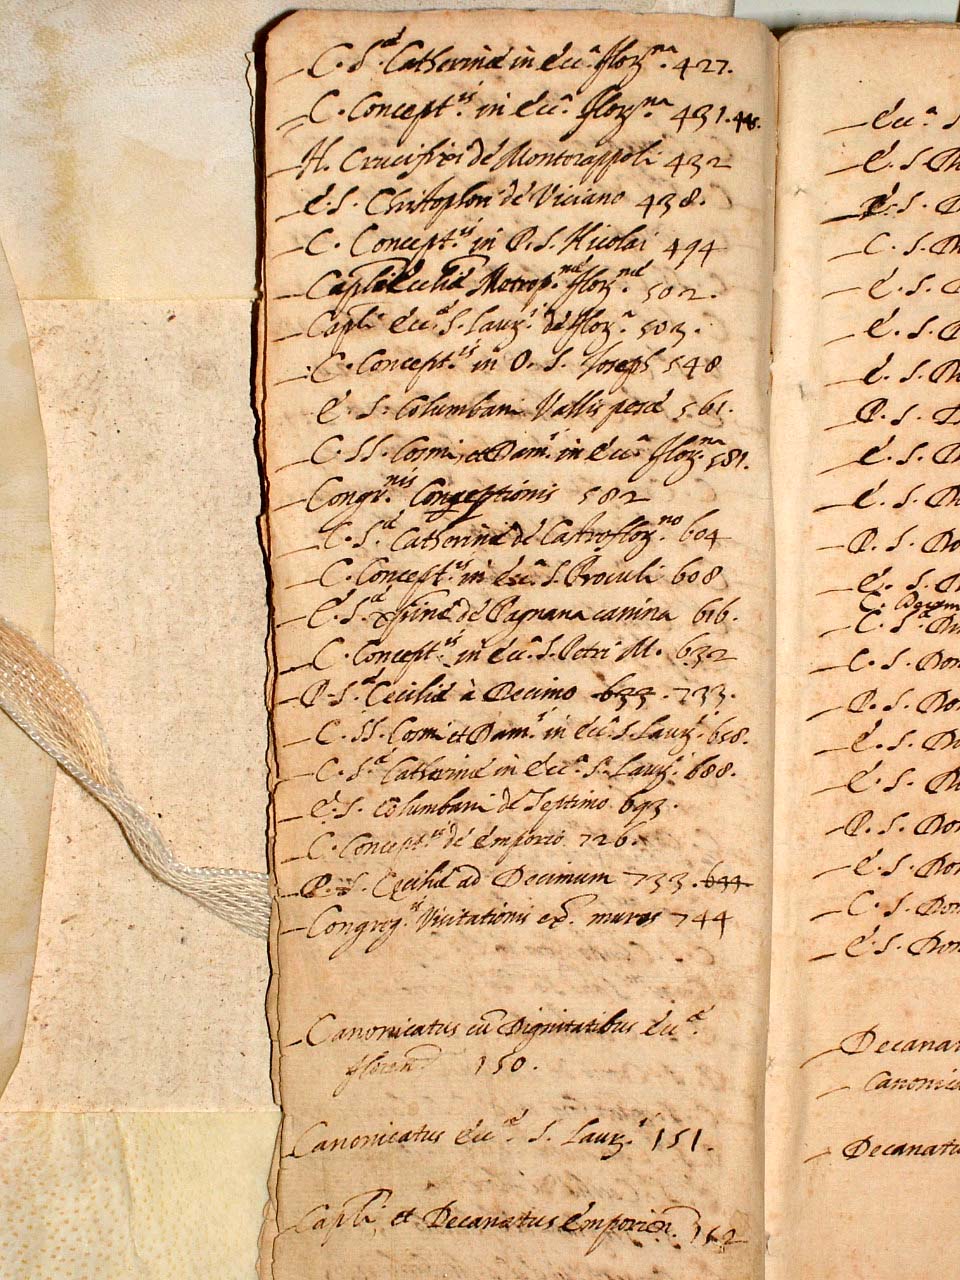 C. S.ᵃᵉ Catherinae in Ecc.ᵃ flor.ⁿᵃ 427.
C. Concept.ⁱˢ in Ecc.ᵃ flor.ⁿᵃ 431.
H. Crucifixi de Montorappoli 432
E. S. Christophori de Viciano 438.
C. Concept.ⁱˢ in P. S. Nicolai 494
Capli Metrop.ⁿᵃᵉ flor.ⁿᵃᵉ 502.
Capli Ecc.ᵃᵉ S. Laur.ⁱ de flor.ᵃ 503.
C. Concept.ⁱˢ in O. S. Joseph 548
E. S. Columbani Vallis pesae 561.
C. SS. Cosmi et Dam.ⁱ in Ecc.ᵃ flor.ⁿᵃ 581.
Congr.ⁿⁱˢ Conceptionis 582
C. S.ᵃᵉ Catherinae de Castroflor.ⁿᵒ 604
C. Concept.ⁱˢ in Ecc.ᵃ S. Proculi 608
E. S.ᵃᵉ de Pagnana canina 616.
C. Concept.ⁱˢ in Ecc.ᵃ S. Petri M. 632
P. S.ᵃᵉ Ceciliae à Decimo 633. 733.
C. SS. Cosmi et Dam.ⁱ in Ecc.ᵃ S. Laur.ⁱ 658.
C. S.ᵃᵉ Catherinae in Ecc.ᵃ S. Laur.ⁱ 688.
E. S. Columbani de Septimo 693.
C. Concept.ⁱˢ de Emporio 726.
P. S. Ceciliae ad Decimum 733. 633.
Congreg.ⁱˢ Visitationis ex. muros 744
Canonicatus cũ Dignitatibus Ecc.ᵃᵉ
floren 150.
Canonicatus Ecc.ᵃᵉ S. Laur.ⁱ 151.
Capli et Decanatus Emporien. 152
Ecc.ᵃ S.
E. S.
E. S.
C. S.
E. S.
E. S.
E. S.
P. S.
E. S.
E. S.
P. S.
E. S.
C.
C. S.ᵃᵉ
C. S.
P. S.
E. S.
E. S.
P. S.
E. S.
C. S.
E. S.
Decana
Canonic
Decanatu